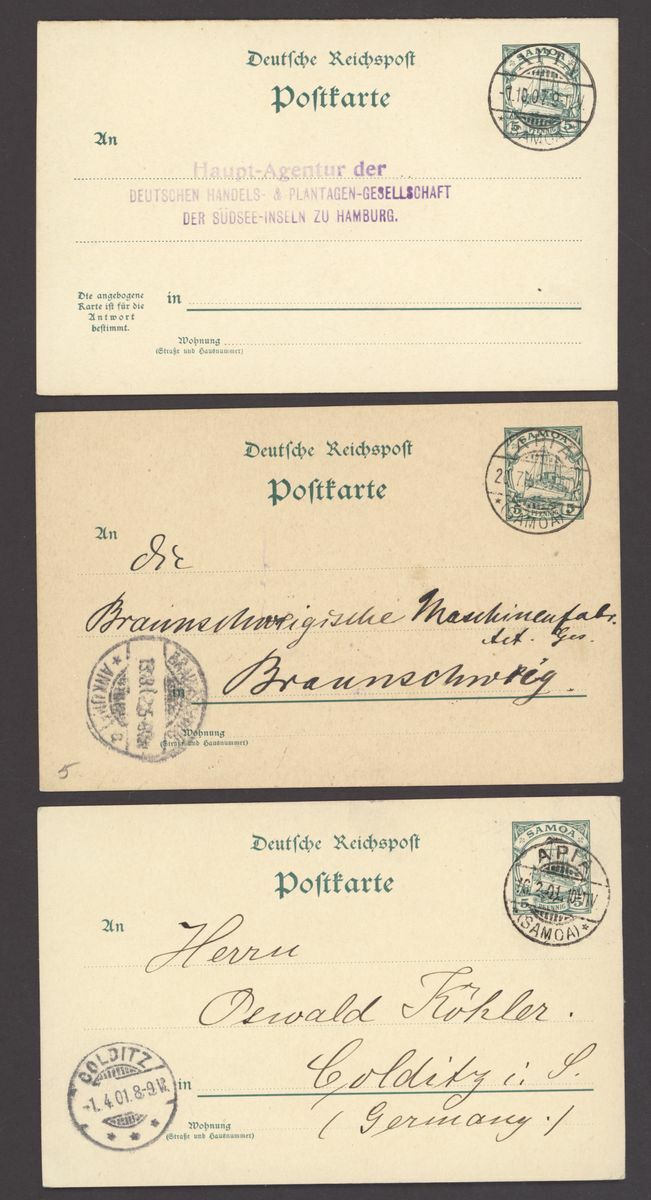 Deutsche Reichspost
Postkarte
SAMOA
5 5
APIA
SAMOA
An
Haupt-Agentur der
DEUTSCHEN HANDELS- & PLANTAGEN-GESELLSCHAFT
DER SÜDSEE-INSELN ZU HAMBURG.
Die angebogene
Karte ist für die
Antwort
bestimmt.
in
Wohnung
(Straße und Hausnummer)
Deutsche Reichspost
Postkarte
SAMOA
5 PFENNIG 5
APIA
(SAMOA)
An
die
Braunschweigische Maschinenfabr.
Act. Ges.
in Braunschweig.
Wohnung
(Straße und Hausnummer)
5
Deutsche Reichspost
Postkarte
SAMOA
5 PFENNIG 5
APIA
16.2.01. 10-11V
(SAMOA)
An
Herrn
Oswald Köhler.
in Colditz i. S.
(Germany.)
COLDITZ
-1.4.01.8-9V.
Wohnung
(Straße und Hausnummer)